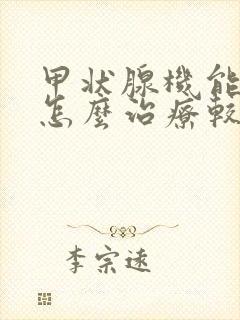 甲状腺機能
怎麼治療較
李宗遠